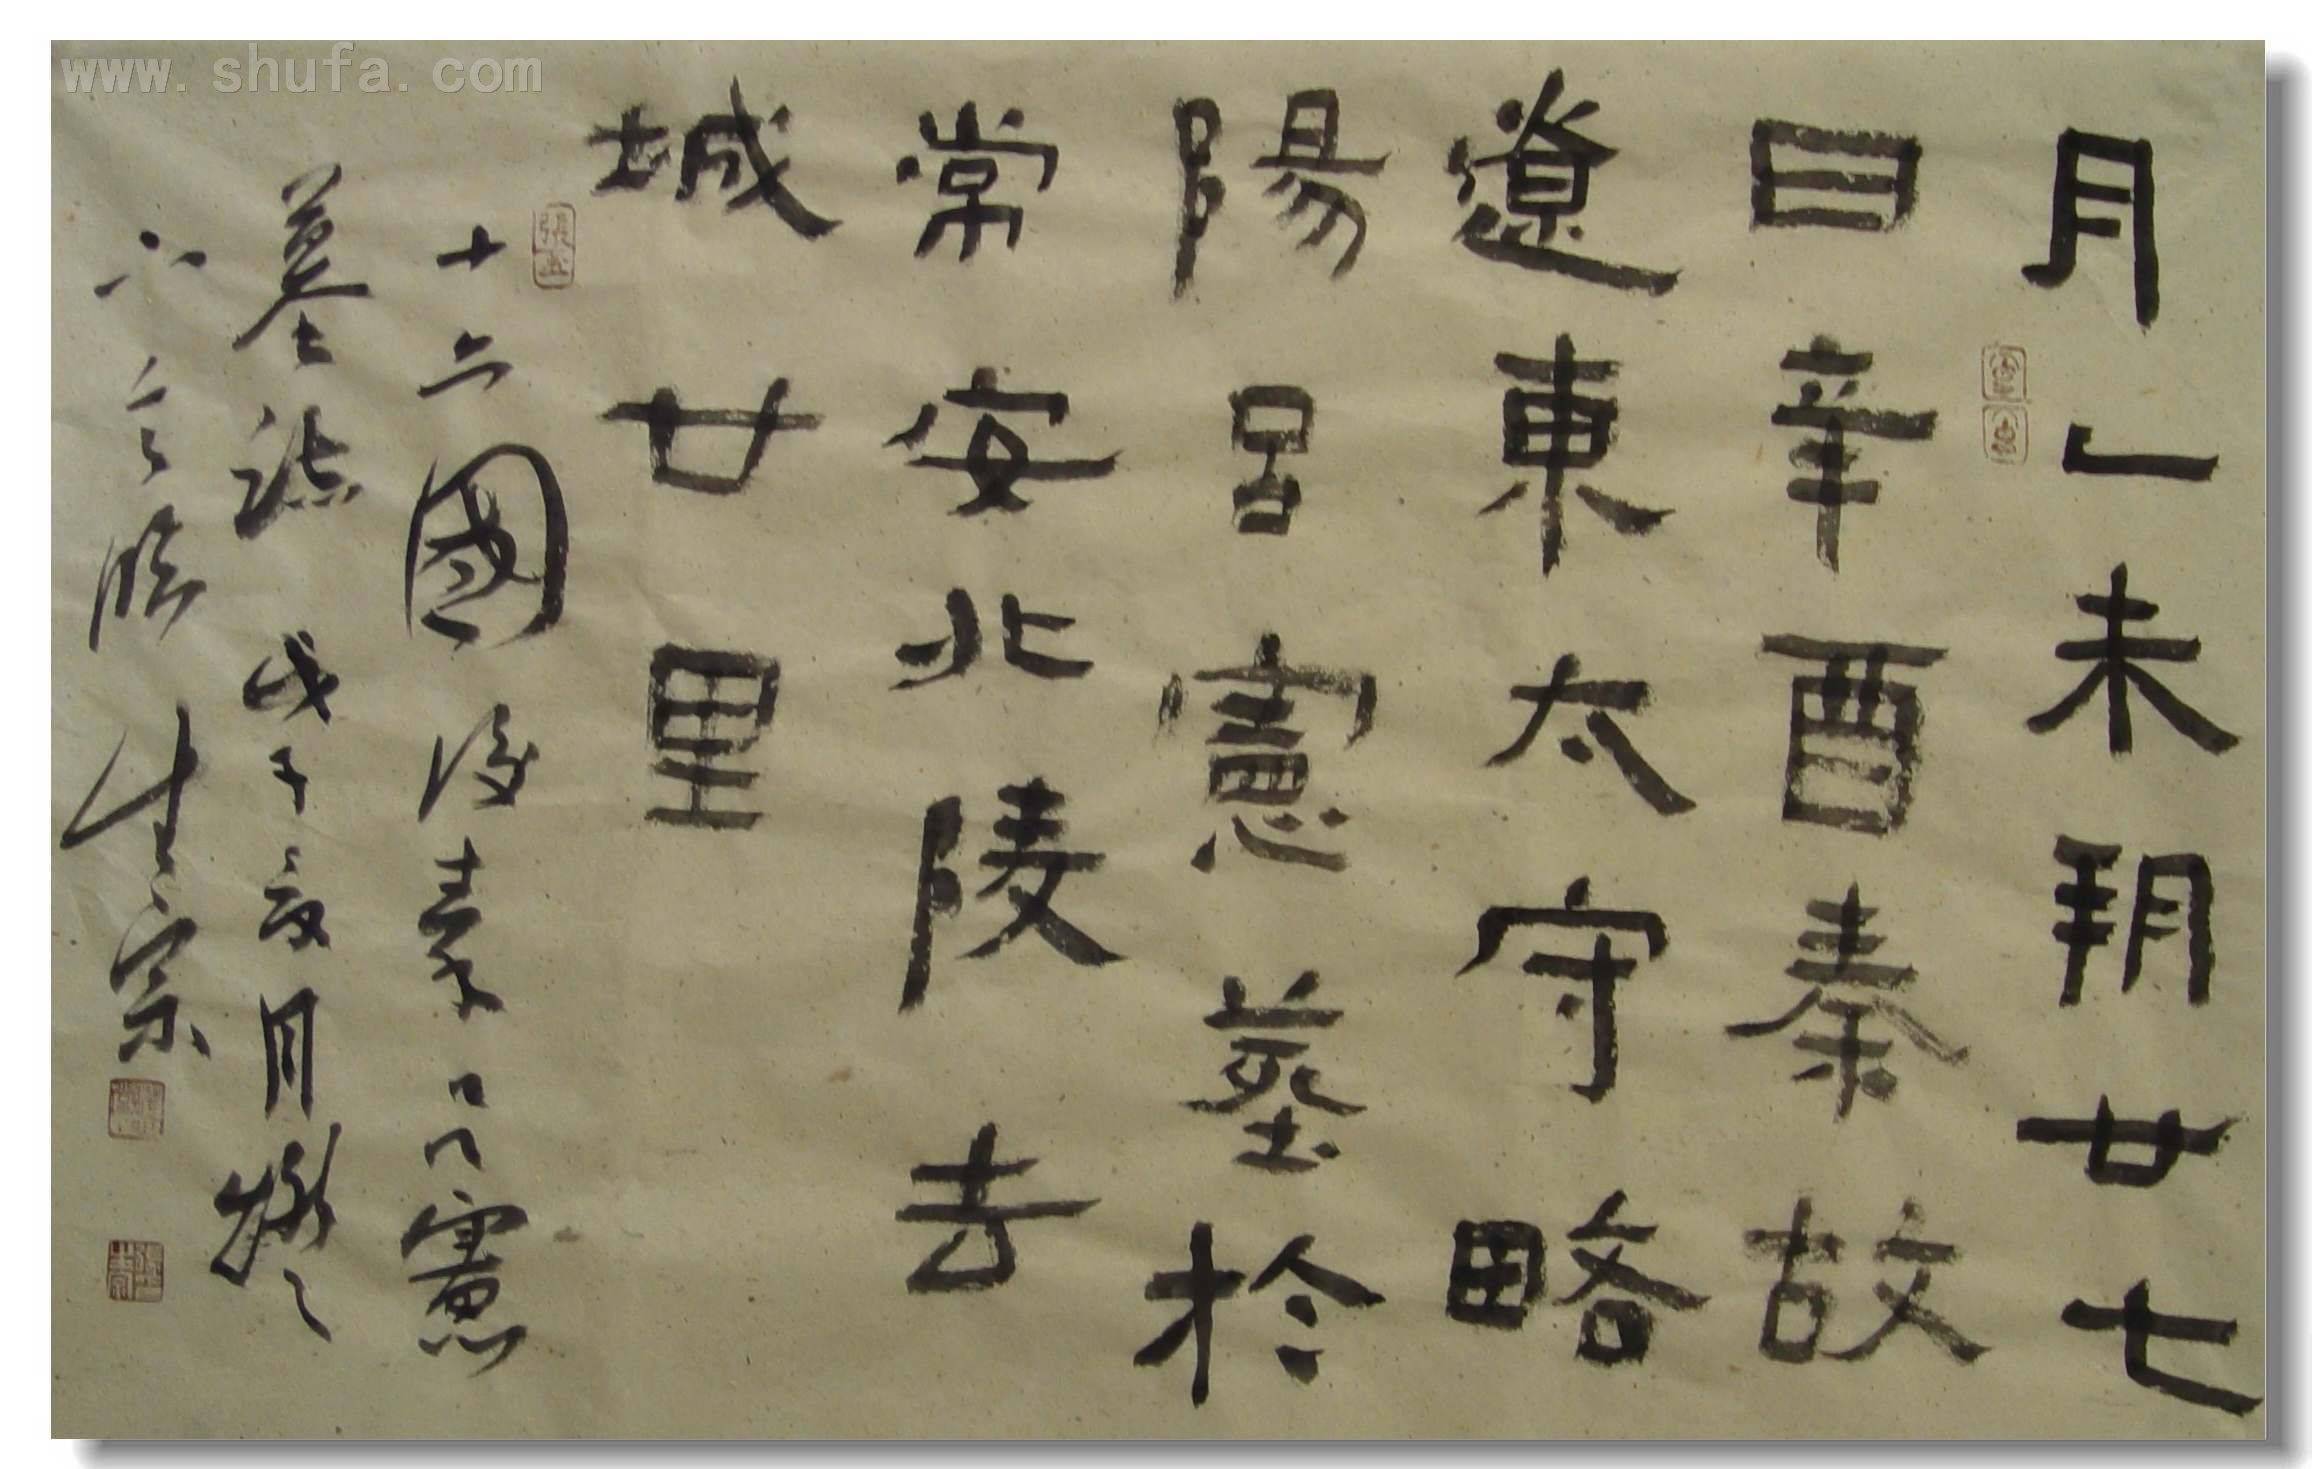 月乚未朔廿七
日辛酉秦故
遼東太守略
陽呂憲葬於
常安北陵去
城廿里
十六國後秦呂憲
墓誌 戊子
臨 生宗
www.shufa.com